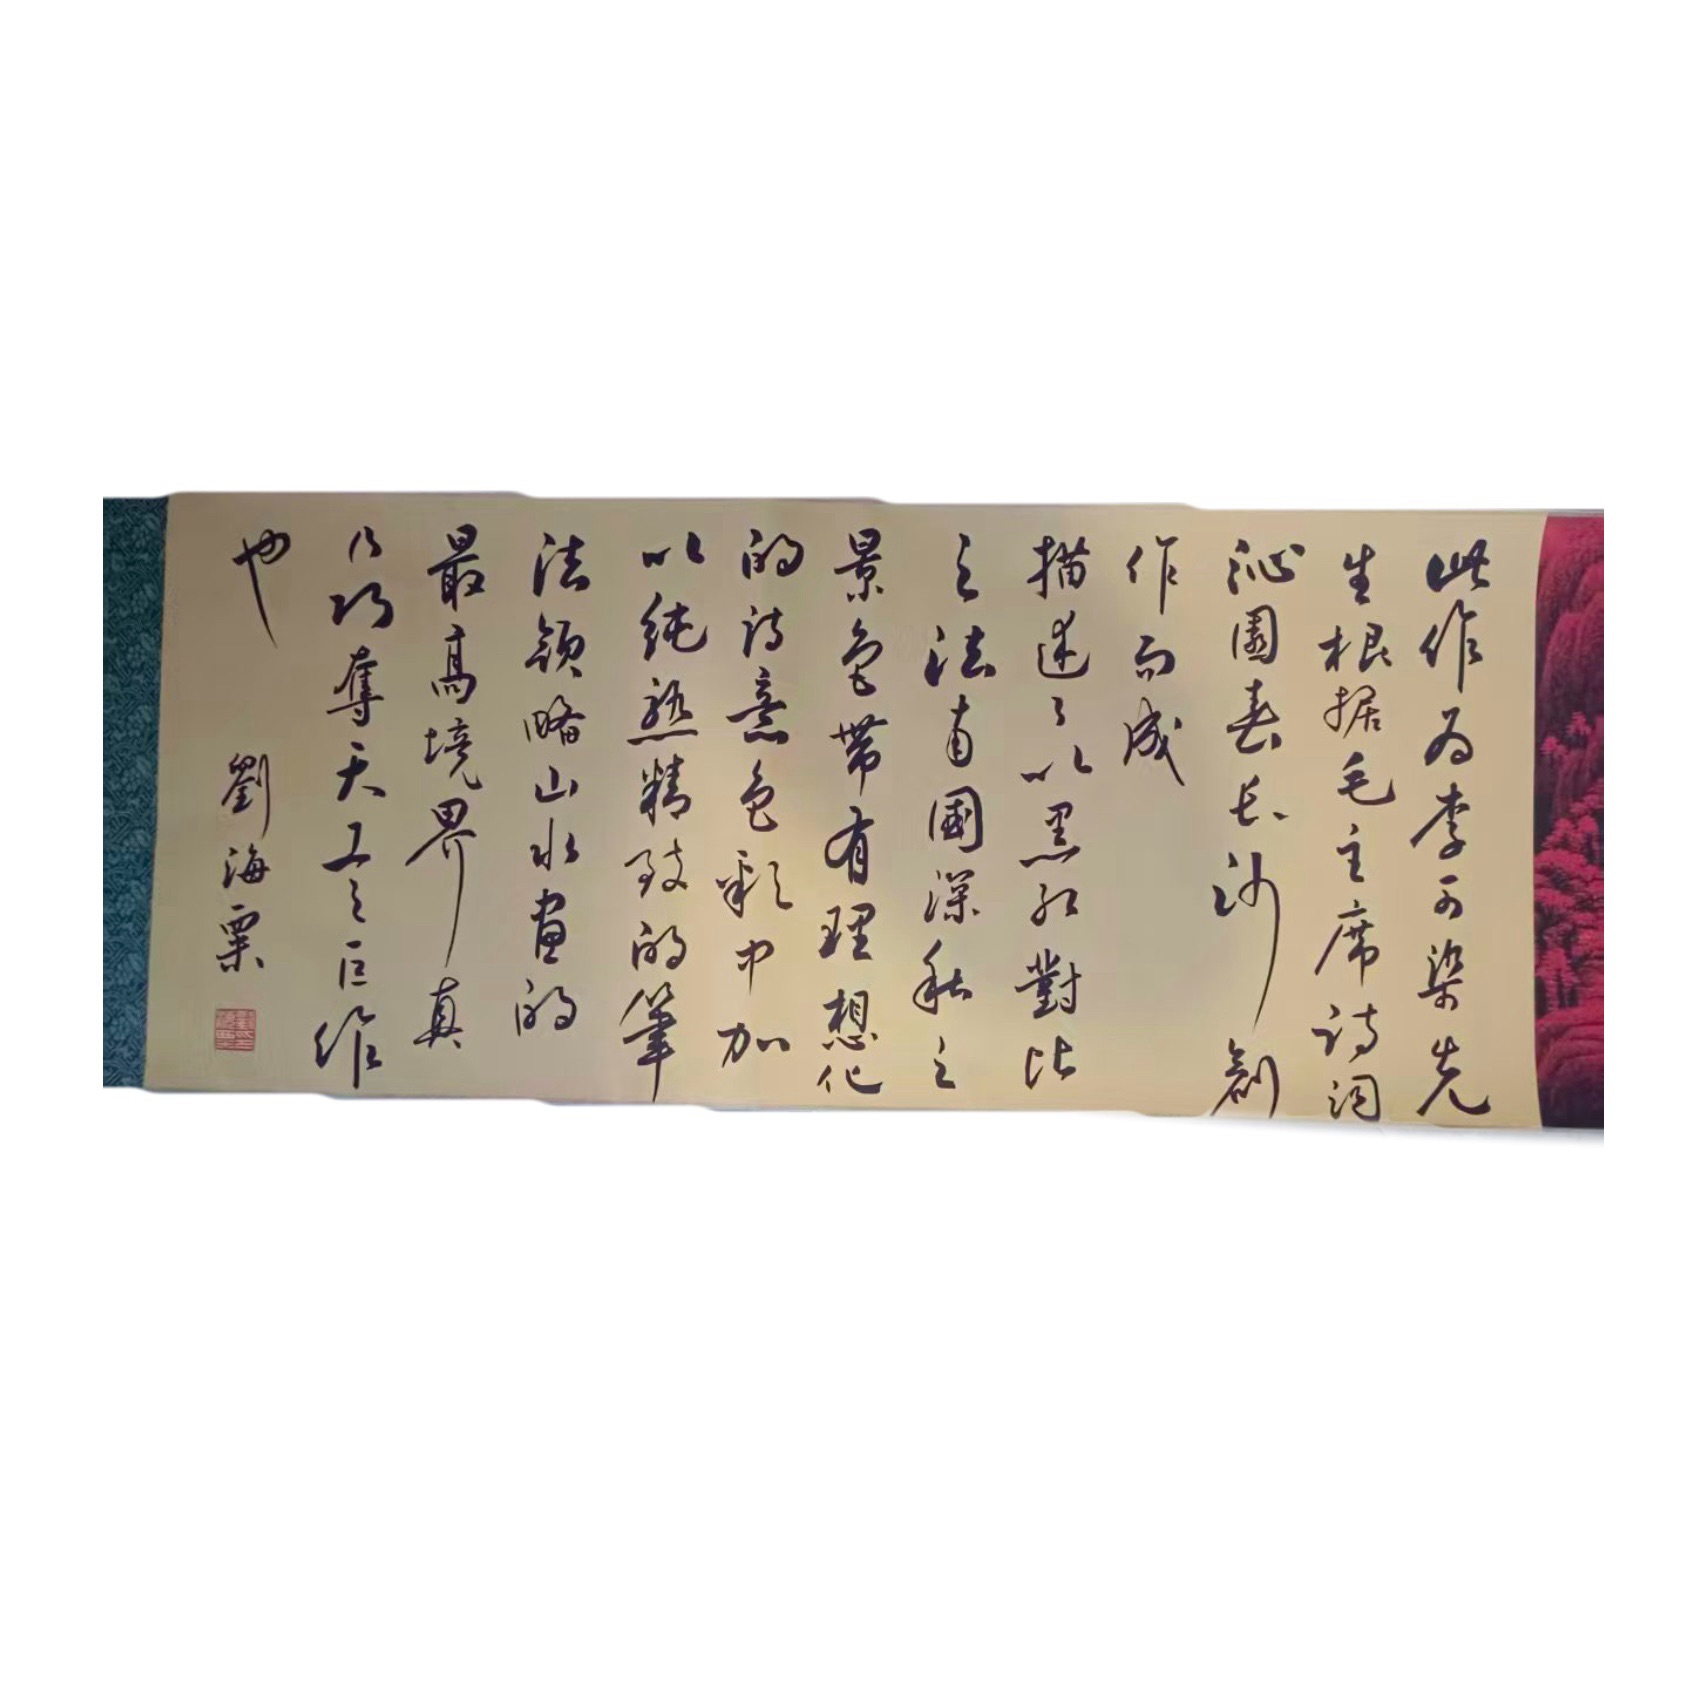 此作为李可染先
生根据毛主席诗词
沁園春长沙創
作而成
描述了以黑红對比
之法南國深秋之
景色带有理想化
的诗意色彩中加
以純熟精致的筆
法領略山水画的
最高境界真
乃巧奪天工之巨作
也
劉海粟